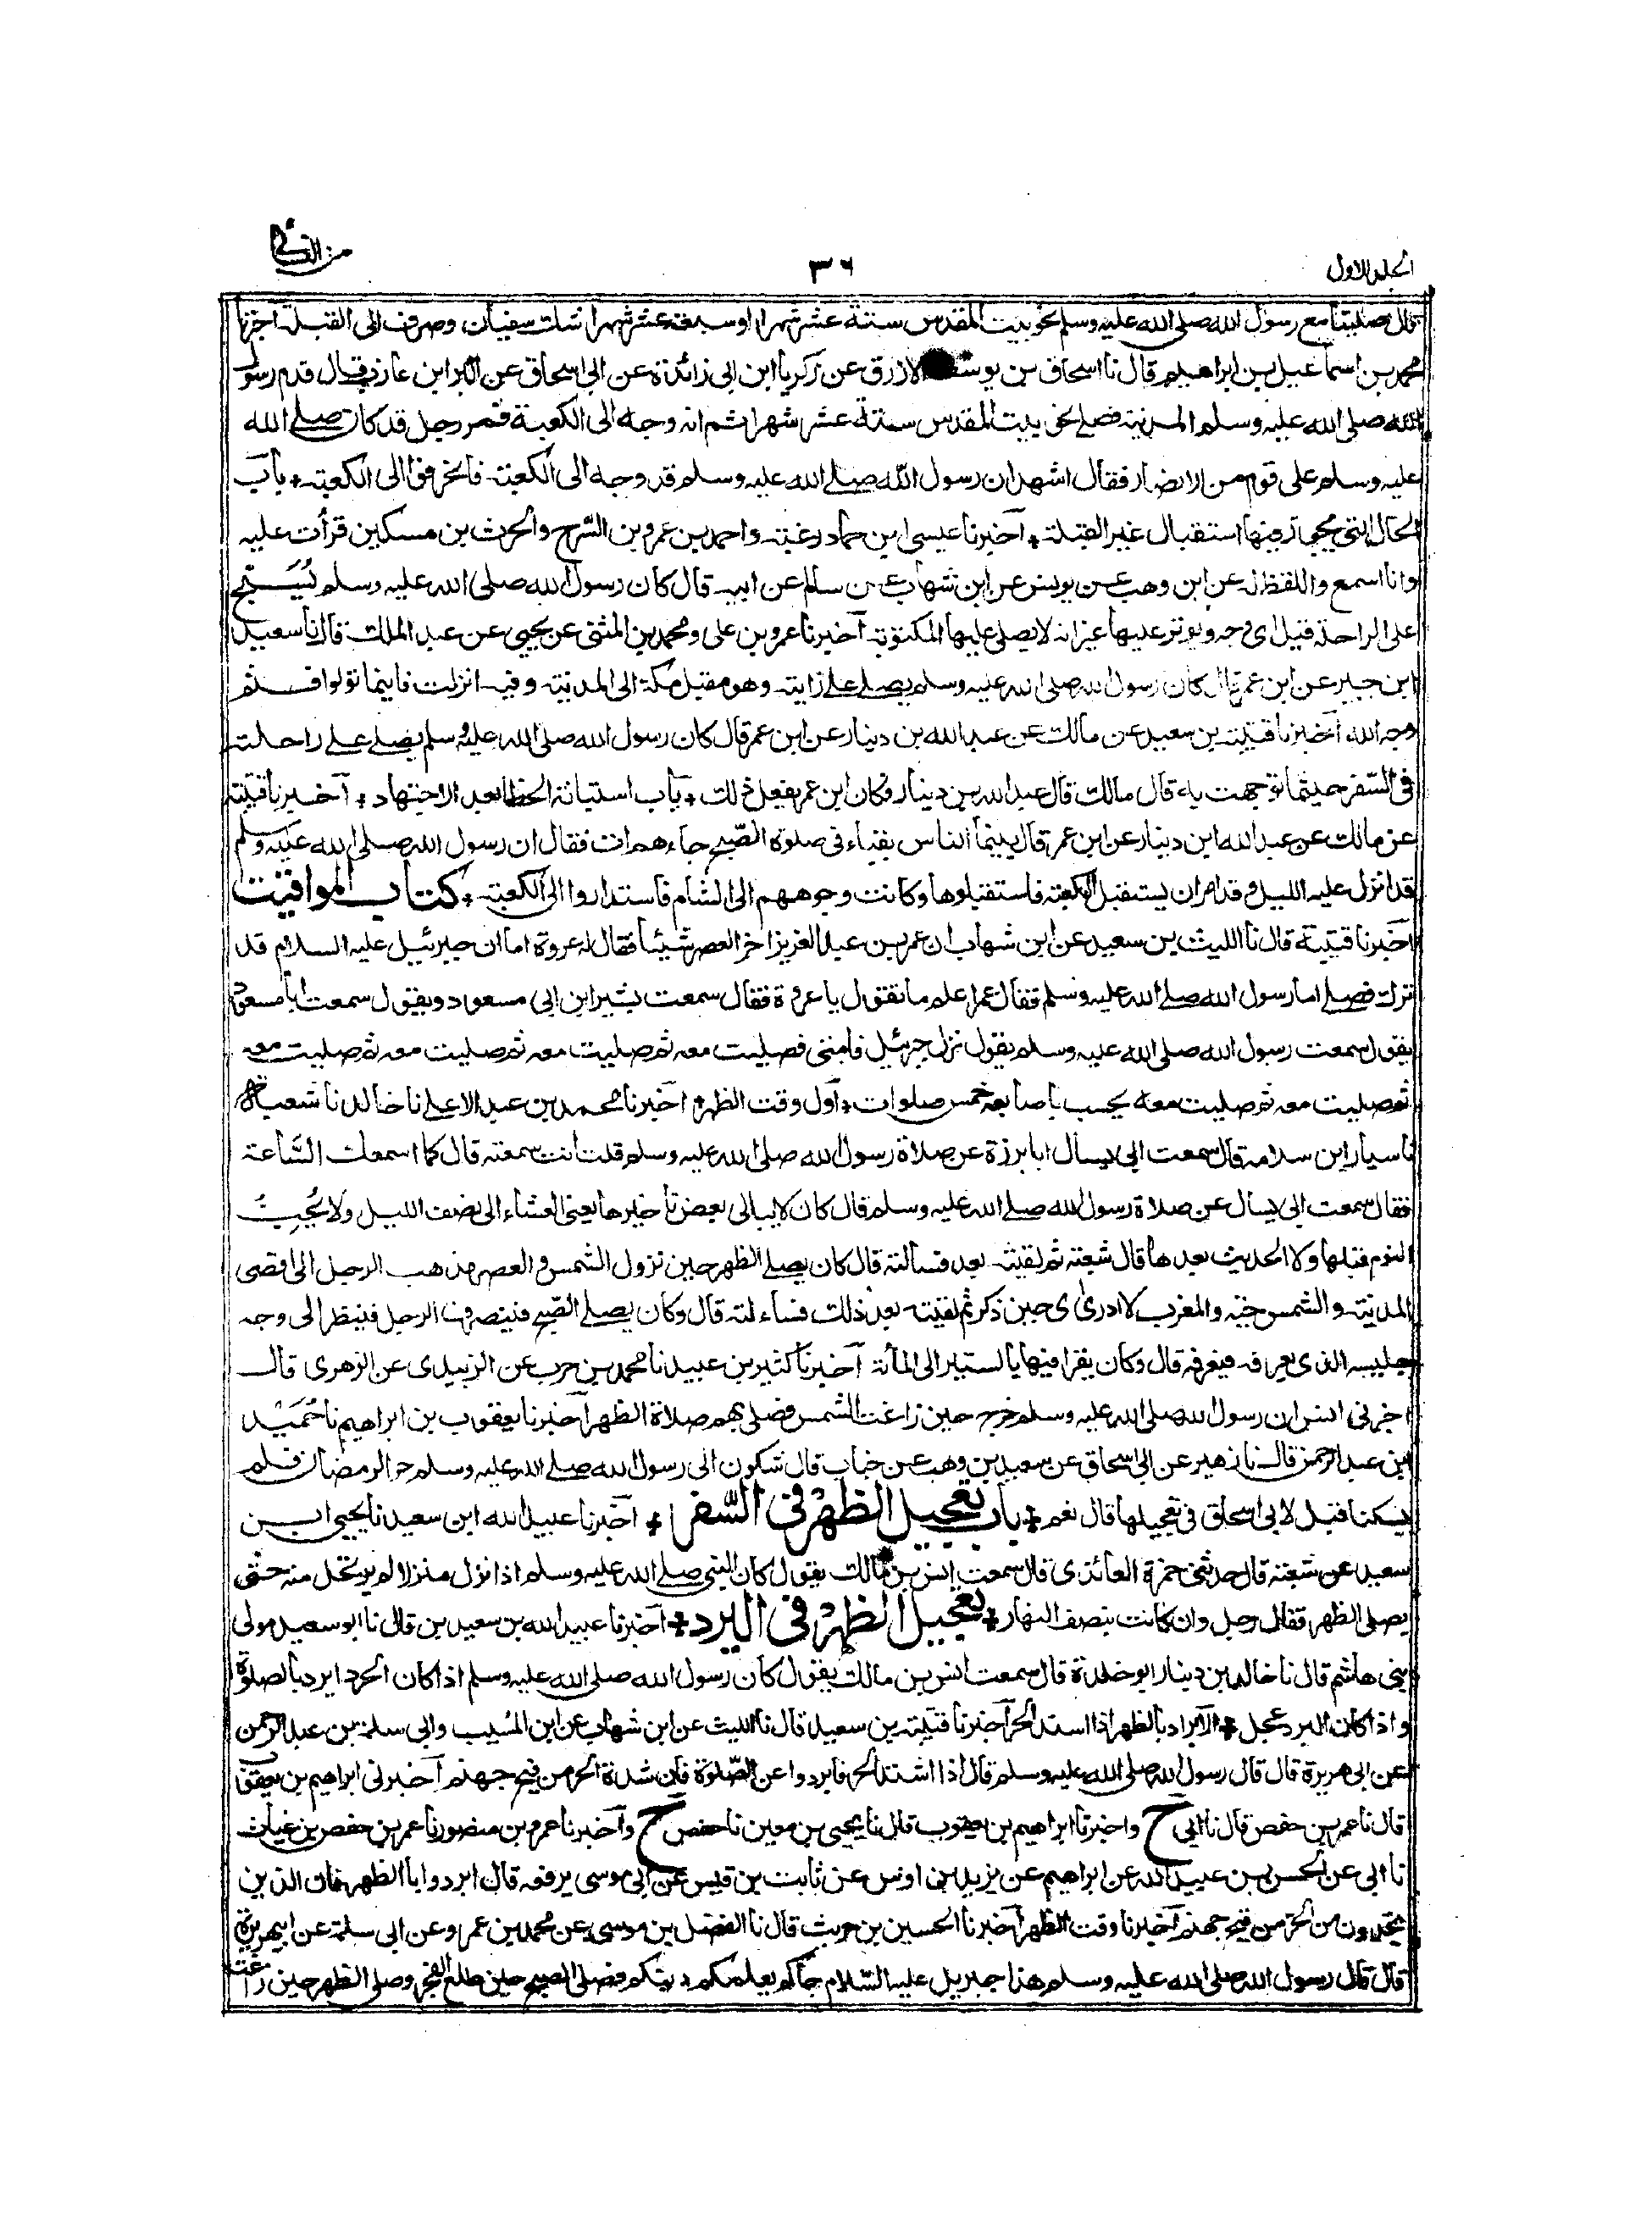 الجلد الاول
٣٦
من النسائي
قال صلينا مع رسول الله صلى الله عليه وسلم نحو بيت المقدس ستة عشر شهرا او سبعة عشر شهرا شك سفيان وصرف الى القبلة اخبرنا
محمد بن اسماعيل بن ابراهيم قال نا اسحاق بن يوسف الازرق عن زكريا ابن ابي زائدة عن ابي اسحاق عن البراء بن عازب قال قدم رسول
الله صلى الله عليه وسلم المدينة فصلے نحو بيت المقدس ستة عشر شهرا ثم انه وجه الى الكعبة فمر رجل قد كان صلے الله
عليه وسلم على قوم من الانصار فقال اشهد ان رسول الله صلے الله عليه وسلم قد وجه الى الكعبة فانحرفوا الى الكعبة ٭ باب
الحال التي يجوز فيها استقبال غير القبلة ٭ اخبرنا عيسى ابن حماد زغبة واحمد بن عمرو بن السرح والحرث بن مسكين قرأت عليه
وانا اسمع واللفظ له عن ابن وهب عن يونس عن ابن شهاب عن سالم عن ابيه قال كان رسول الله صلى الله عليه وسلم يُسَبِّح
على الراحلة قبل اى وجه ويوتر عليها غير انه لا يصلى عليها المكتوبة اخبرنا عمرو بن على ومحمد بن المثنى عن يحيى عن عبد الملك قال نا سعيد
ابن جبير عن ابن عمر قال كان رسول الله صلى الله عليه وسلم يصلے علے دابته وهو مقبل من مكة الى المدينة وفيه انزلت فاينما تولوا فثم
وجه الله اخبرنا قتيبة بن سعيد عن مالك عن عبد الله بن دينار عن ابن عمر قال كان رسول الله صلى الله عليه وسلم يصلے علے راحلته
في السفر حيثما توجهت به قال مالك قال عبد الله بن دينار وكان ابن عمر يفعل ذلك ٭ باب استبانة الخطا بعد الاجتهاد ٭ اخبرنا قتيبة
عن مالك عن عبد الله ابن دينار عن ابن عمر قال بينما الناس بقباء في صلوة الصبح جاءهم ات فقال ان رسول الله صلى الله عليه وسلم
قد انزل عليه الليل وقد امر ان يستقبل الكعبة فاستقبلوها وكانت وجوههم الى الشام فاستداروا الى الكعبة ٭ كتاب المواقيت
اخبرنا قتيبة قال نا الليث بن سعيد عن ابن شهاب ان عمر بن عبد العزيز اخر العصر شيئا فقال له عروة اما ان جبرئيل عليه السلام قد
نزل فصلے امام رسول الله صلے الله عليه وسلم فقال عمر اعلم ما تقول يا عروة فقال سمعت بشير ابن ابي مسعود ويقول سمعت ابا مسعود
يقول سمعت رسول الله صلى الله عليه وسلم يقول نزل جبرئيل فامني فصليت معه ثم صليت معه ثم صليت معه ثم صليت معه
ثم صليت معه ثم صليت معه يحسب باصابعه خمس صلوات ٭ اول وقت الظهر ٭ اخبرنا محمد بن عبد الاعلے نا خالد نا شعبة
نا سيار ابن سلامه قال سمعت ابي يسأل ابا برزة عن صلاة رسول الله صلى الله عليه وسلم قلت انت سمعته قال كما اسمعك الساعة
فقال سمعت ابي يسال عن صلاة رسول الله صلے الله عليه وسلم قال كان لا يبالي بعض تاخيرها يعني العشاء الى نصف الليل ولا يُحِبُّ
النوم قبلها ولا الحديث بعدها قال شعبة ثم لقيته بعد فسالته قال كان يصلے الظهر حين تزول الشمس والعصر يذهب الرجل الى اقصى
المدينة والشمس حية والمغرب لا ادرى اى حين ذكر ثم لقيته بعد ذلك فساءلته قال وكان يصلے الصبح فينصرف الرجل فينظر الى وجه
جليسه الذى يعرفه فيعرفه قال وكان يقرا فيها بالستين الى المائة اخبرنا كثير بن عبيد نا محمد بن حرب عن الزبيدى عن الزهرى قال
اخبرنى انس ان رسول الله صلى الله عليه وسلم خرج حين زاغت الشمس فصلى بهم صلاة الظهر اخبرنا يعقوب بن ابراهيم نا حُمَيْد
ابن عبد الرحمن قال نا زهير عن ابي اسحاق عن سعيد بن وهب عن خباب قال شكونا الى رسول الله صلے الله عليه وسلم حر الرمضاء فلم
يشكنا قيل لابى اسحاق فى تعجيلها قال نعم ٭ باب تعجيل الظهر فى السفر ٭ اخبرنا عبيد الله ابن سعيد نا يحيى ابن
سعيد عن شعبة قال حدثنى حمزة العائذى قال سمعت انس بن مالك يقول كان النبى صلے الله عليه وسلم اذا نزل منزلا لم يرتحل منه حتى
يصلى الظهر فقال رجل وان كانت بنصف النهار ٭ تعجيل الظهر فى البرد ٭ اخبرنا عبيد الله بن سعيد بن قال نا ابو سعيد مولى
بنى هاشم قال نا خالد بن دينار ابو خلدة قال سمعت انس بن مالك يقول كان رسول الله صلى الله عليه وسلم اذا كان الحر ابرد بالصلوة
واذا كان البرد عجل ٭ الابراد بالظهر اذا استد الحر اخبرنا قتيبة بن سعيد قال نا الليث عن ابن شهاب عن ابن المسيب وابى سلمة بن عبد الرحمن
عن ابى هريرة قال قال رسول الله صلى الله عليه وسلم قال اذا اشتد الحر فابردوا عن الصلوة فان شدة الحر من فيح جهنم اخبرنى ابراهيم بن يعقوب
قال نا عمر بن حفص قال نا ابى ح واخبرنا ابراهيم بن يعقوب قال نا يحيى بن معين نا حفص ح واخبرنا عمرو بن منصور نا عمر بن حفص بن غياث
نا ابى عن الحسن بن عبيد الله عن ابراهيم عن يزيد بن اوس عن ثابت بن قيس عن ابى موسى يرفعه قال ابردوا با الظهر فان الذين
تجدون من الحر من فيح جهنم اخبرنا وقت الظهر اخبرنا الحسين بن حريث قال نا الفضل بن موسى عن محمد بن عمرو عن ابى سلمة عن ابيهريرة
قال قال رسول الله صلى الله عليه وسلم هذا جبريل عليه السلام جاكم يعلمكم دينكم فصلى الصبح حين طلع الفجر وصلى الظهر حين زاغت